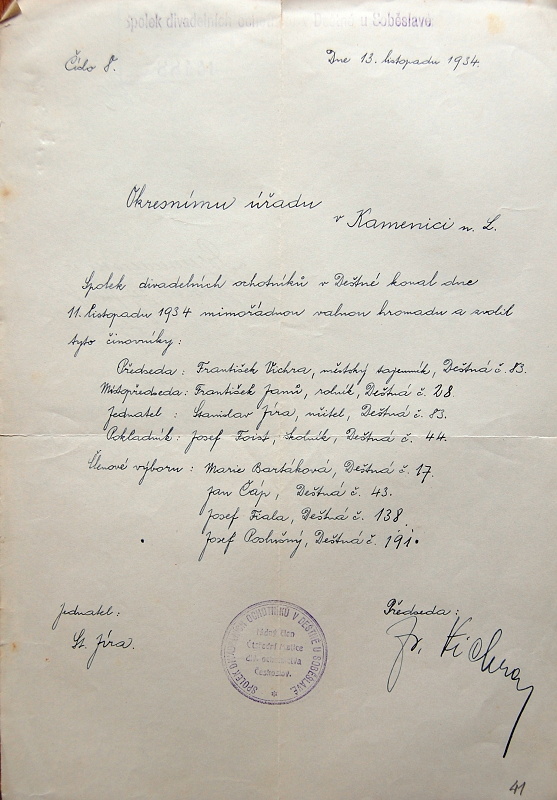 Spolek divadelních ochotníků v Deštné u Soběslavě
Číslo 8.
Dne 13. listopadu 1934.
Okresnímu úřadu
v Kamenici n. L.
Spolek divadelních ochotníků v Deštné konal dne
11. listopadu 1934 mimořádnou valnou hromadu a zvolil
tyto činovníky:
Předseda: František Vichra, městský tajemník, Deštná č. 83.
Místopředseda: František Janů, rolník, Deštná č. 28.
Jednatel: Stanislav Jíra, učitel, Deštná č. 83.
Pokladník: Josef Foist, školník, Deštná č. 44.
Členové výboru: Marie Bartáková, Deštná č. 17.
Jan Čáp, Deštná č. 43.
Josef Fiala, Deštná č. 138
Josef Poslušný, Deštná č. 191.
Jednatel:
St. Jíra.
Předseda:
Fr. Vichra
SPOLEK DIVADELNÍCH OCHOTNÍKŮ V DEŠTNÉ U SOBĚSLAVĚ
řádný člen
Ústřední Matice
div. ochotnictva
Českoslov.
41